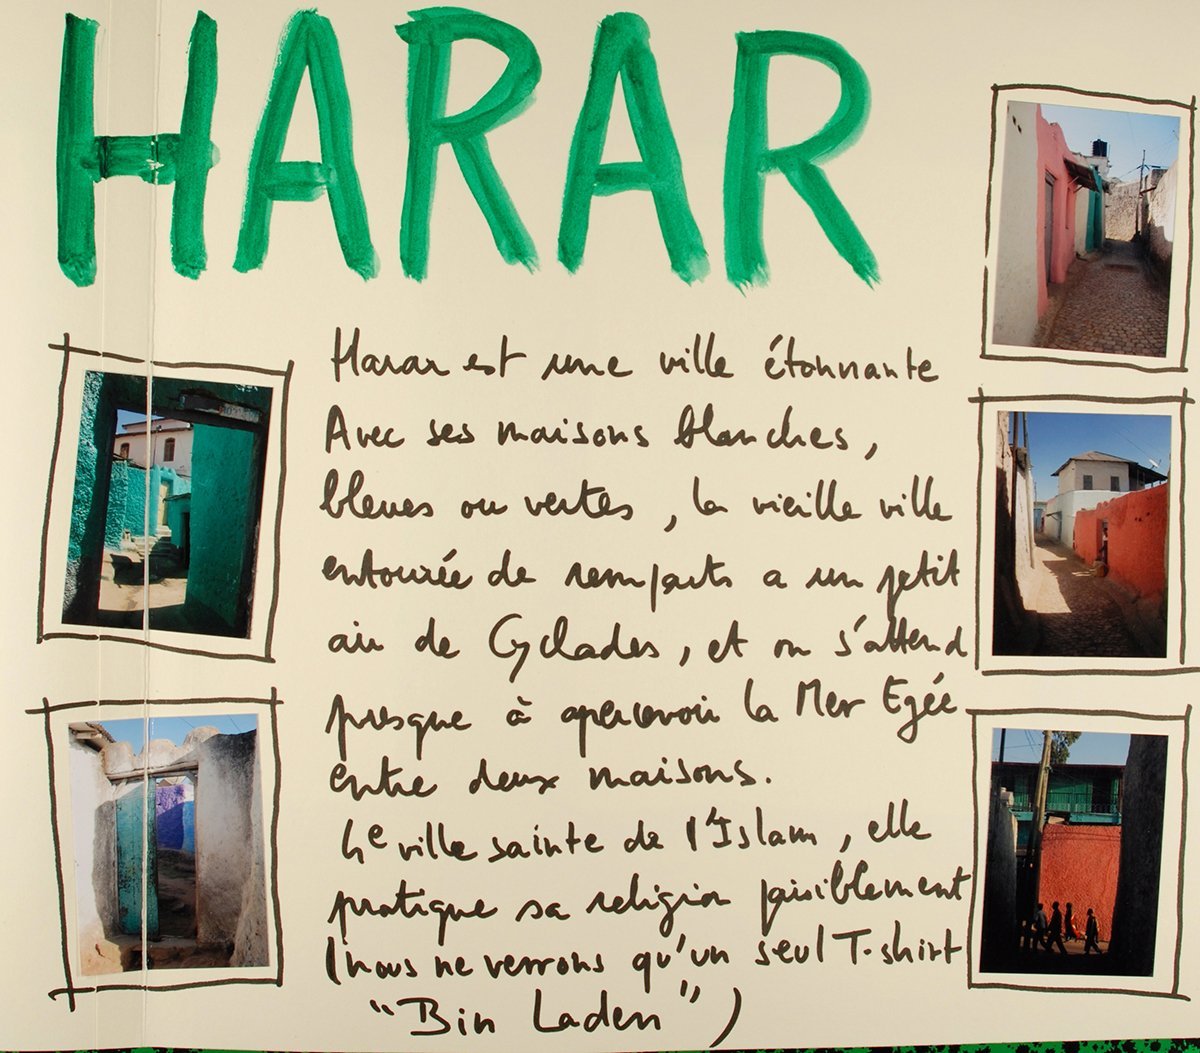 HARAR
Harar est une ville étonnante
Avec ses maisons blanches,
bleues ou vertes, la vieille ville
entourée de remparts a un petit
air de Cyclades, et on s'attend
presque à apercevoir la Mer Egée
entre deux maisons.
4e ville sainte de l'Islam, elle
pratique sa religion paisiblement
(nous ne verrons qu'un seul T-shirt
"Bin Laden")